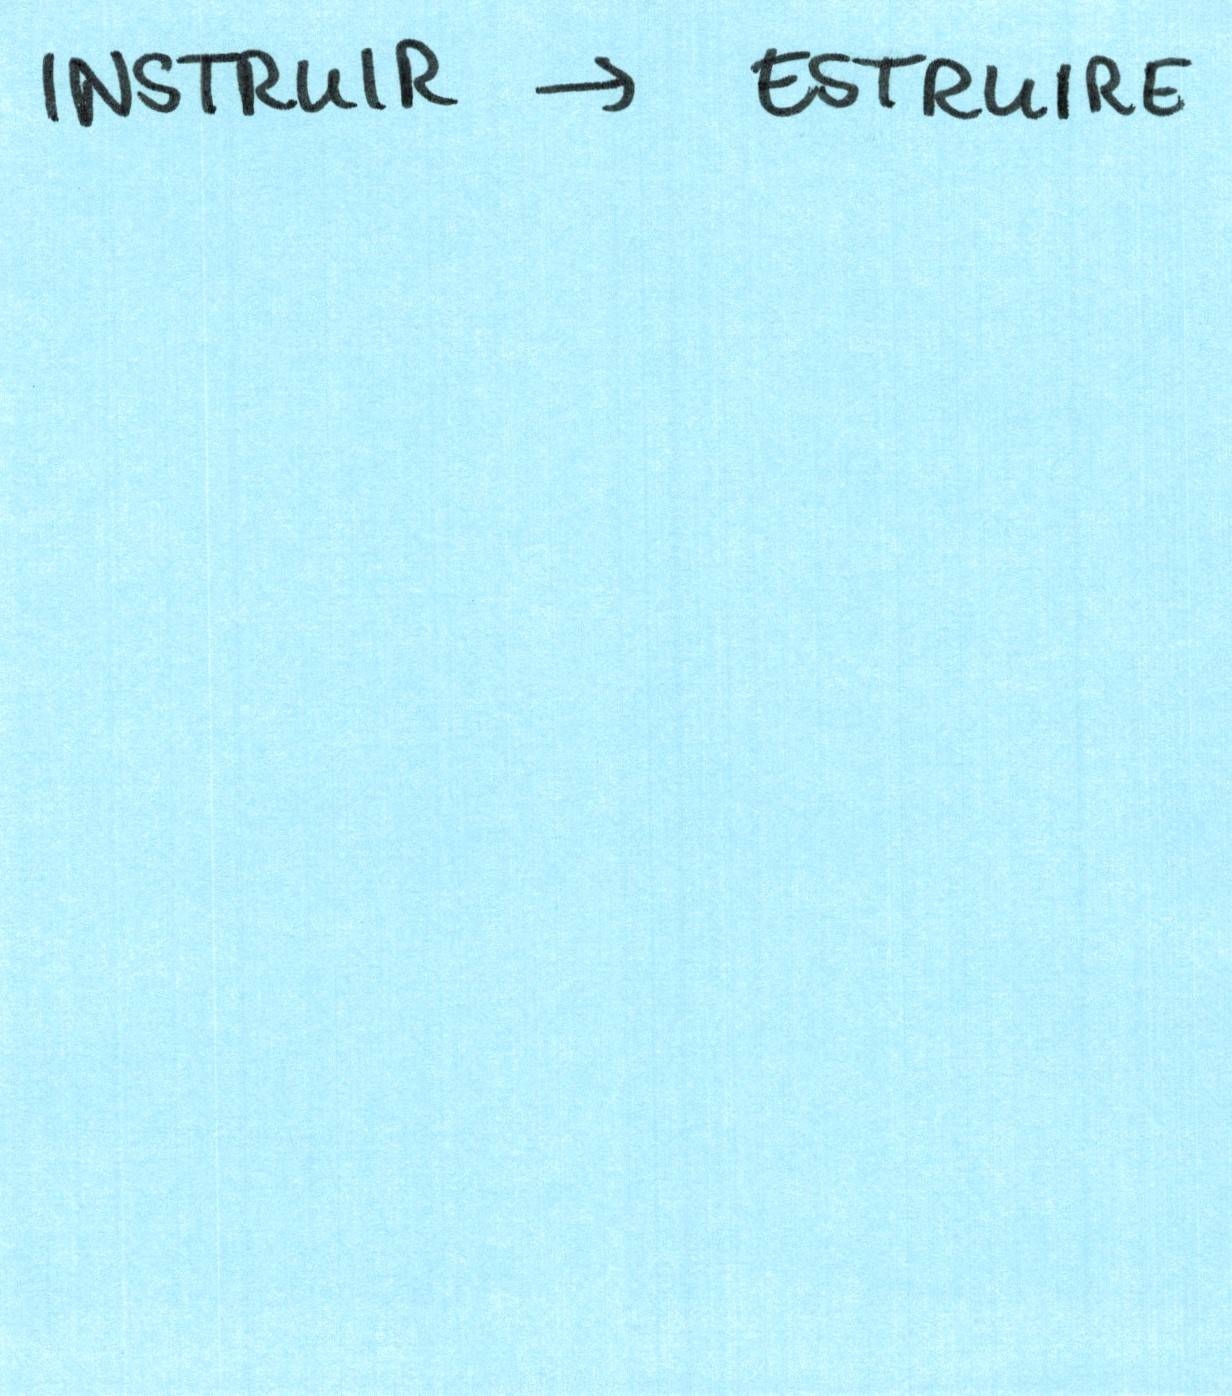 INSTRUIR → ESTRUIRE